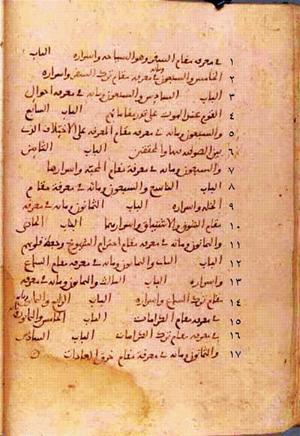 ١ في معرفة مقام السفر وهو السياحة واسراره الباب
٢ الخامس والسبعون ومائة في معرفة مقام ترك السفر واسراره
٣ الباب السادس والسبعون ومائة في معرفة احوال
٤ القوم عند الموت على قدر مقاماتهم الباب السابع
٥ والسبعون ومائة في معرفة مقام المعرفة على الاختلاف الذي
٦ بين الصوفية فيها والمحققين الباب الثامن
٧ والسبعون ومائة في معرفة مقام المحبة واسرارها
٨ الباب التاسع والسبعون ومائة في معرفة مقام
٩ الخلة واسراره الباب الثمانون ومائة في معرفة
١٠ مقام الشوق والاشتياق واسرارهما الباب الحادي
١١ والثمانون ومائة في معرفة مقام احترام الشيوخ وحفظ قلوبهم
١٢ الباب الثاني والثمانون ومائة في معرفة مقام السماع
١٣ واسراره الباب الثالث والثمانون ومائة في معرفة
١٤ مقام ترك السماع واسراره الباب الرابع والثمانون ومائة
١٥ في معرفة مقام الكرامات الباب الخامس والثمانون ومائة
١٦ في معرفة مقام ترك الكرامات الباب السادس
١٧ والثمانون ومائة في معرفة مقام خرق العادات